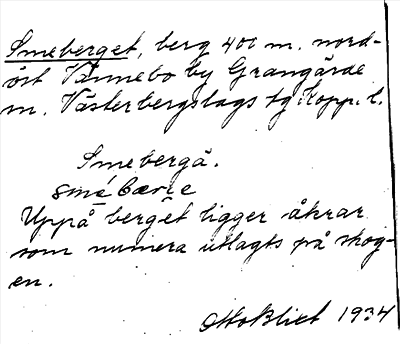 Smeberget, berg 400 m. nord-
öst Vannebo by Grangärde
m. Västerbergslags tg Kopp. l.
Smebergä.
smè bærʒe
Uppå berget ligger åkrar
som numera utlagts på skog-
en.
Otto Blixt 1934